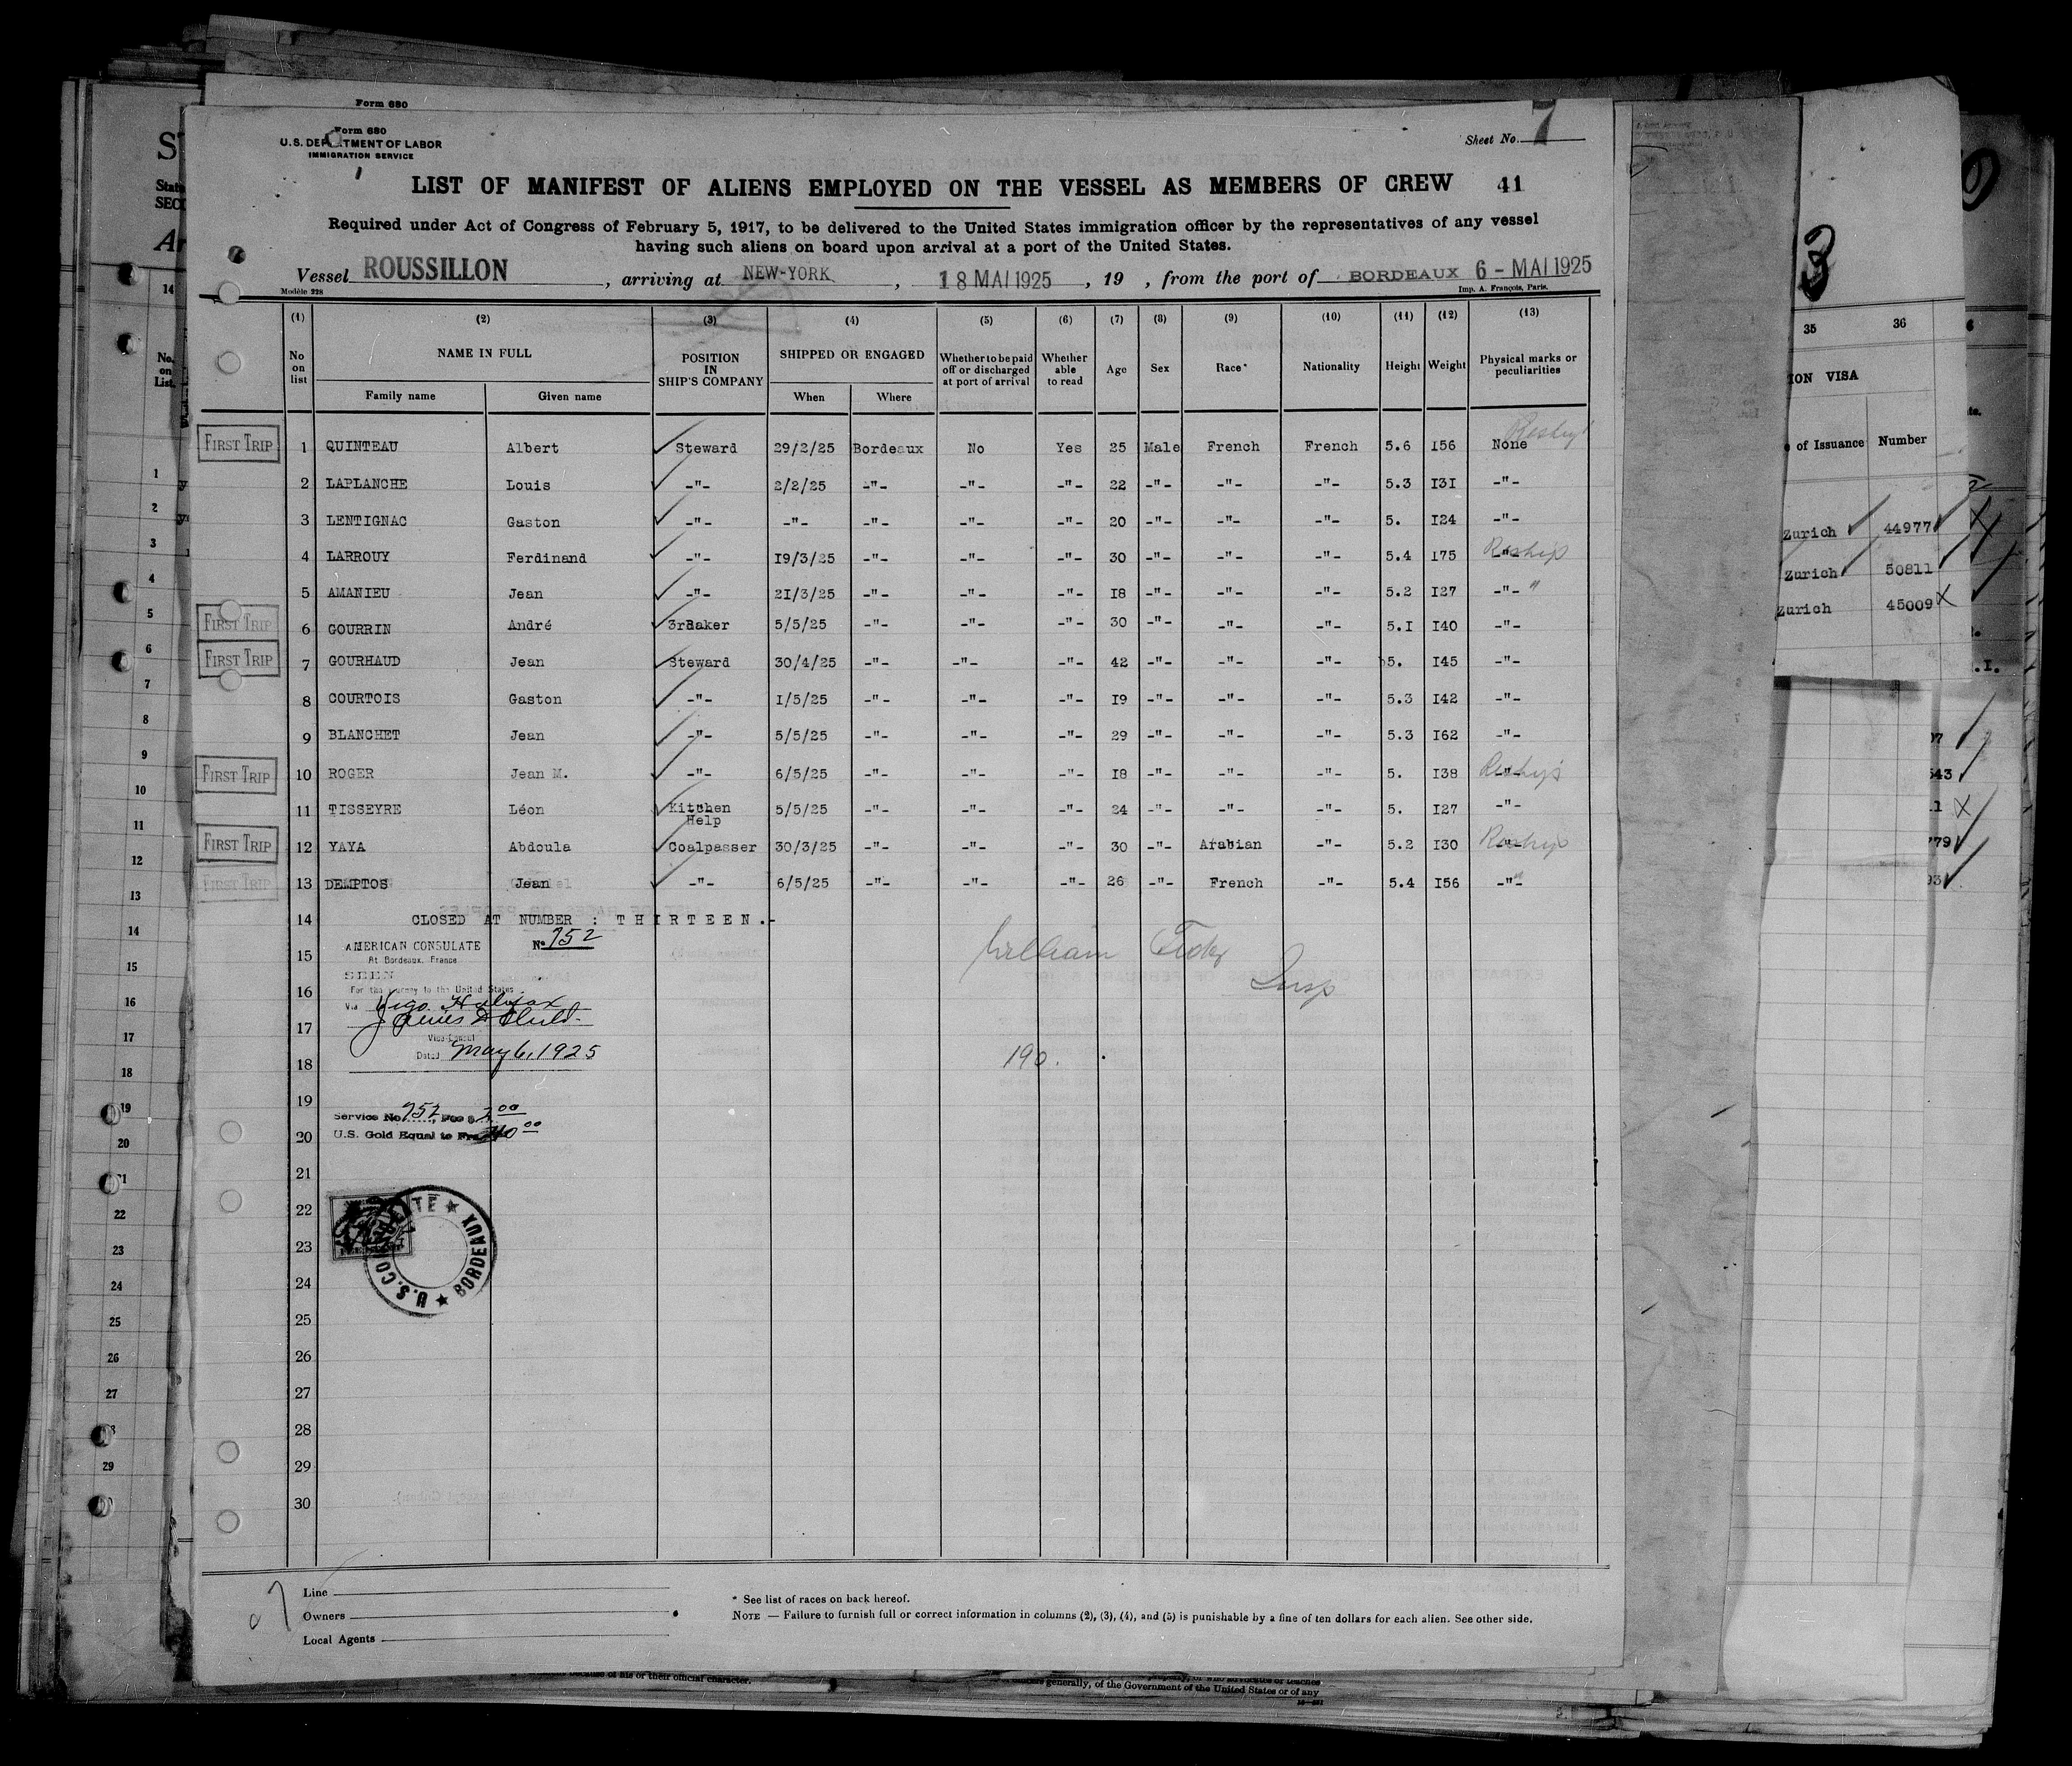 Form 680
Form 680
U.S. DEPARTMENT OF LABOR
IMMIGRATION SERVICE
Sheet No. 7
LIST OF MANIFEST OF ALIENS EMPLOYED ON THE VESSEL AS MEMBERS OF CREW 41
Required under Act of Congress of February 5, 1917, to be delivered to the United States immigration officer by the representatives of any vessel
having such aliens on board upon arrival at a port of the United States.
Vessel ROUSSILLON , arriving at NEW-YORK , 18 MAI 1925 , 19 , from the port of BORDEAUX 6 - MAI 1925
Modèle 228
Imp. A. François, Paris.
(1) (2) (3) (4) (5) (6) (7) (8) (9) (10) (11) (12) (13)
No on list NAME IN FULL POSITION IN SHIP'S COMPANY SHIPPED OR ENGAGED Whether to be paid off or discharged at port of arrival Whether able to read Age Sex Race* Nationality Height Weight Physical marks or peculiarities
Family name Given name When Where
FIRST TRIP 1 QUINTEAU Albert Steward 29/2/25 Bordeaux No Yes 25 Male French French 5.6 I56 None
2 LAPLANCHE Louis -"- 2/2/25 -"- -"- -"- 22 -"- -"- -"- 5.3 I3I -"-
3 LENTIGNAC Gaston -"- -"- -"- -"- -"- 20 -"- -"- -"- 5. I24 -"-
4 LARROUY Ferdinand -"- I9/3/25 -"- -"- -"- 30 -"- -"- -"- 5.4 I75 -"- Reship
5 AMANIEU Jean -"- 2I/3/25 -"- -"- -"- I8 -"- -"- -"- 5.2 I27 -"- "
FIRST TRIP 6 GOURRIN André 3rBaker 5/5/25 -"- -"- -"- 30 -"- -"- -"- 5.I I40 -"-
FIRST TRIP 7 GOURHAUD Jean Steward 30/4/25 -"- -"- -"- 42 -"- -"- -"- 5. I45 -"-
8 COURTOIS Gaston -"- I/5/25 -"- -"- -"- I9 -"- -"- -"- 5.3 I42 -"-
9 BLANCHET Jean -"- 5/5/25 -"- -"- -"- 29 -"- -"- -"- 5.3 I62 -"-
FIRST TRIP 10 ROGER Jean M. -"- 6/5/25 -"- -"- -"- I8 -"- -"- -"- 5. I38 -"-
11 TISSEYRE Léon Kitchen Help 5/5/25 -"- -"- -"- 24 -"- -"- -"- 5. I27 -"-
FIRST TRIP 12 YAYA Abdoula Coalpasser 30/3/25 -"- -"- -"- 30 -"- Arabian -"- 5.2 I30 -"- Reship
FIRST TRIP 13 DEMPTOS Jean -"- 6/5/25 -"- -"- -"- 26 -"- French -"- 5.4 I56 -"-
14 CLOSED AT NUMBER : T H I R T E E N .-
AMERICAN CONSULATE No 752
At Bordeaux, France
15 William
SEEN
For the journey to the United States
16 Via Vigo Halifax Insp
17
Vice-Consul
Dated May 6, 1925
18 190.
19
Service No 752, Fee $ 2.00
20 U.S. Gold Equal to Frs 40.00
21
22
23
U.S. CONSULATE ★ BORDEAUX ★
24
25
26
27
28
29
30
Line
Owners
Local Agents
* See list of races on back hereof.
NOTE — Failure to furnish full or correct information in columns (2), (3), (4), and (5) is punishable by a fine of ten dollars for each alien. See other side.
because of his or their official character.
generally, of the Government of the United States or of any
35 36
ION VISA
of Issuance Number
Zurich 44977
Zurich 50811
Zurich 45009
No. on List
14
1
2
3
4
5
6
7
8
9
10
11
12
13
14
15
16
17
18
19
20
22
23
24
25
26
27
29